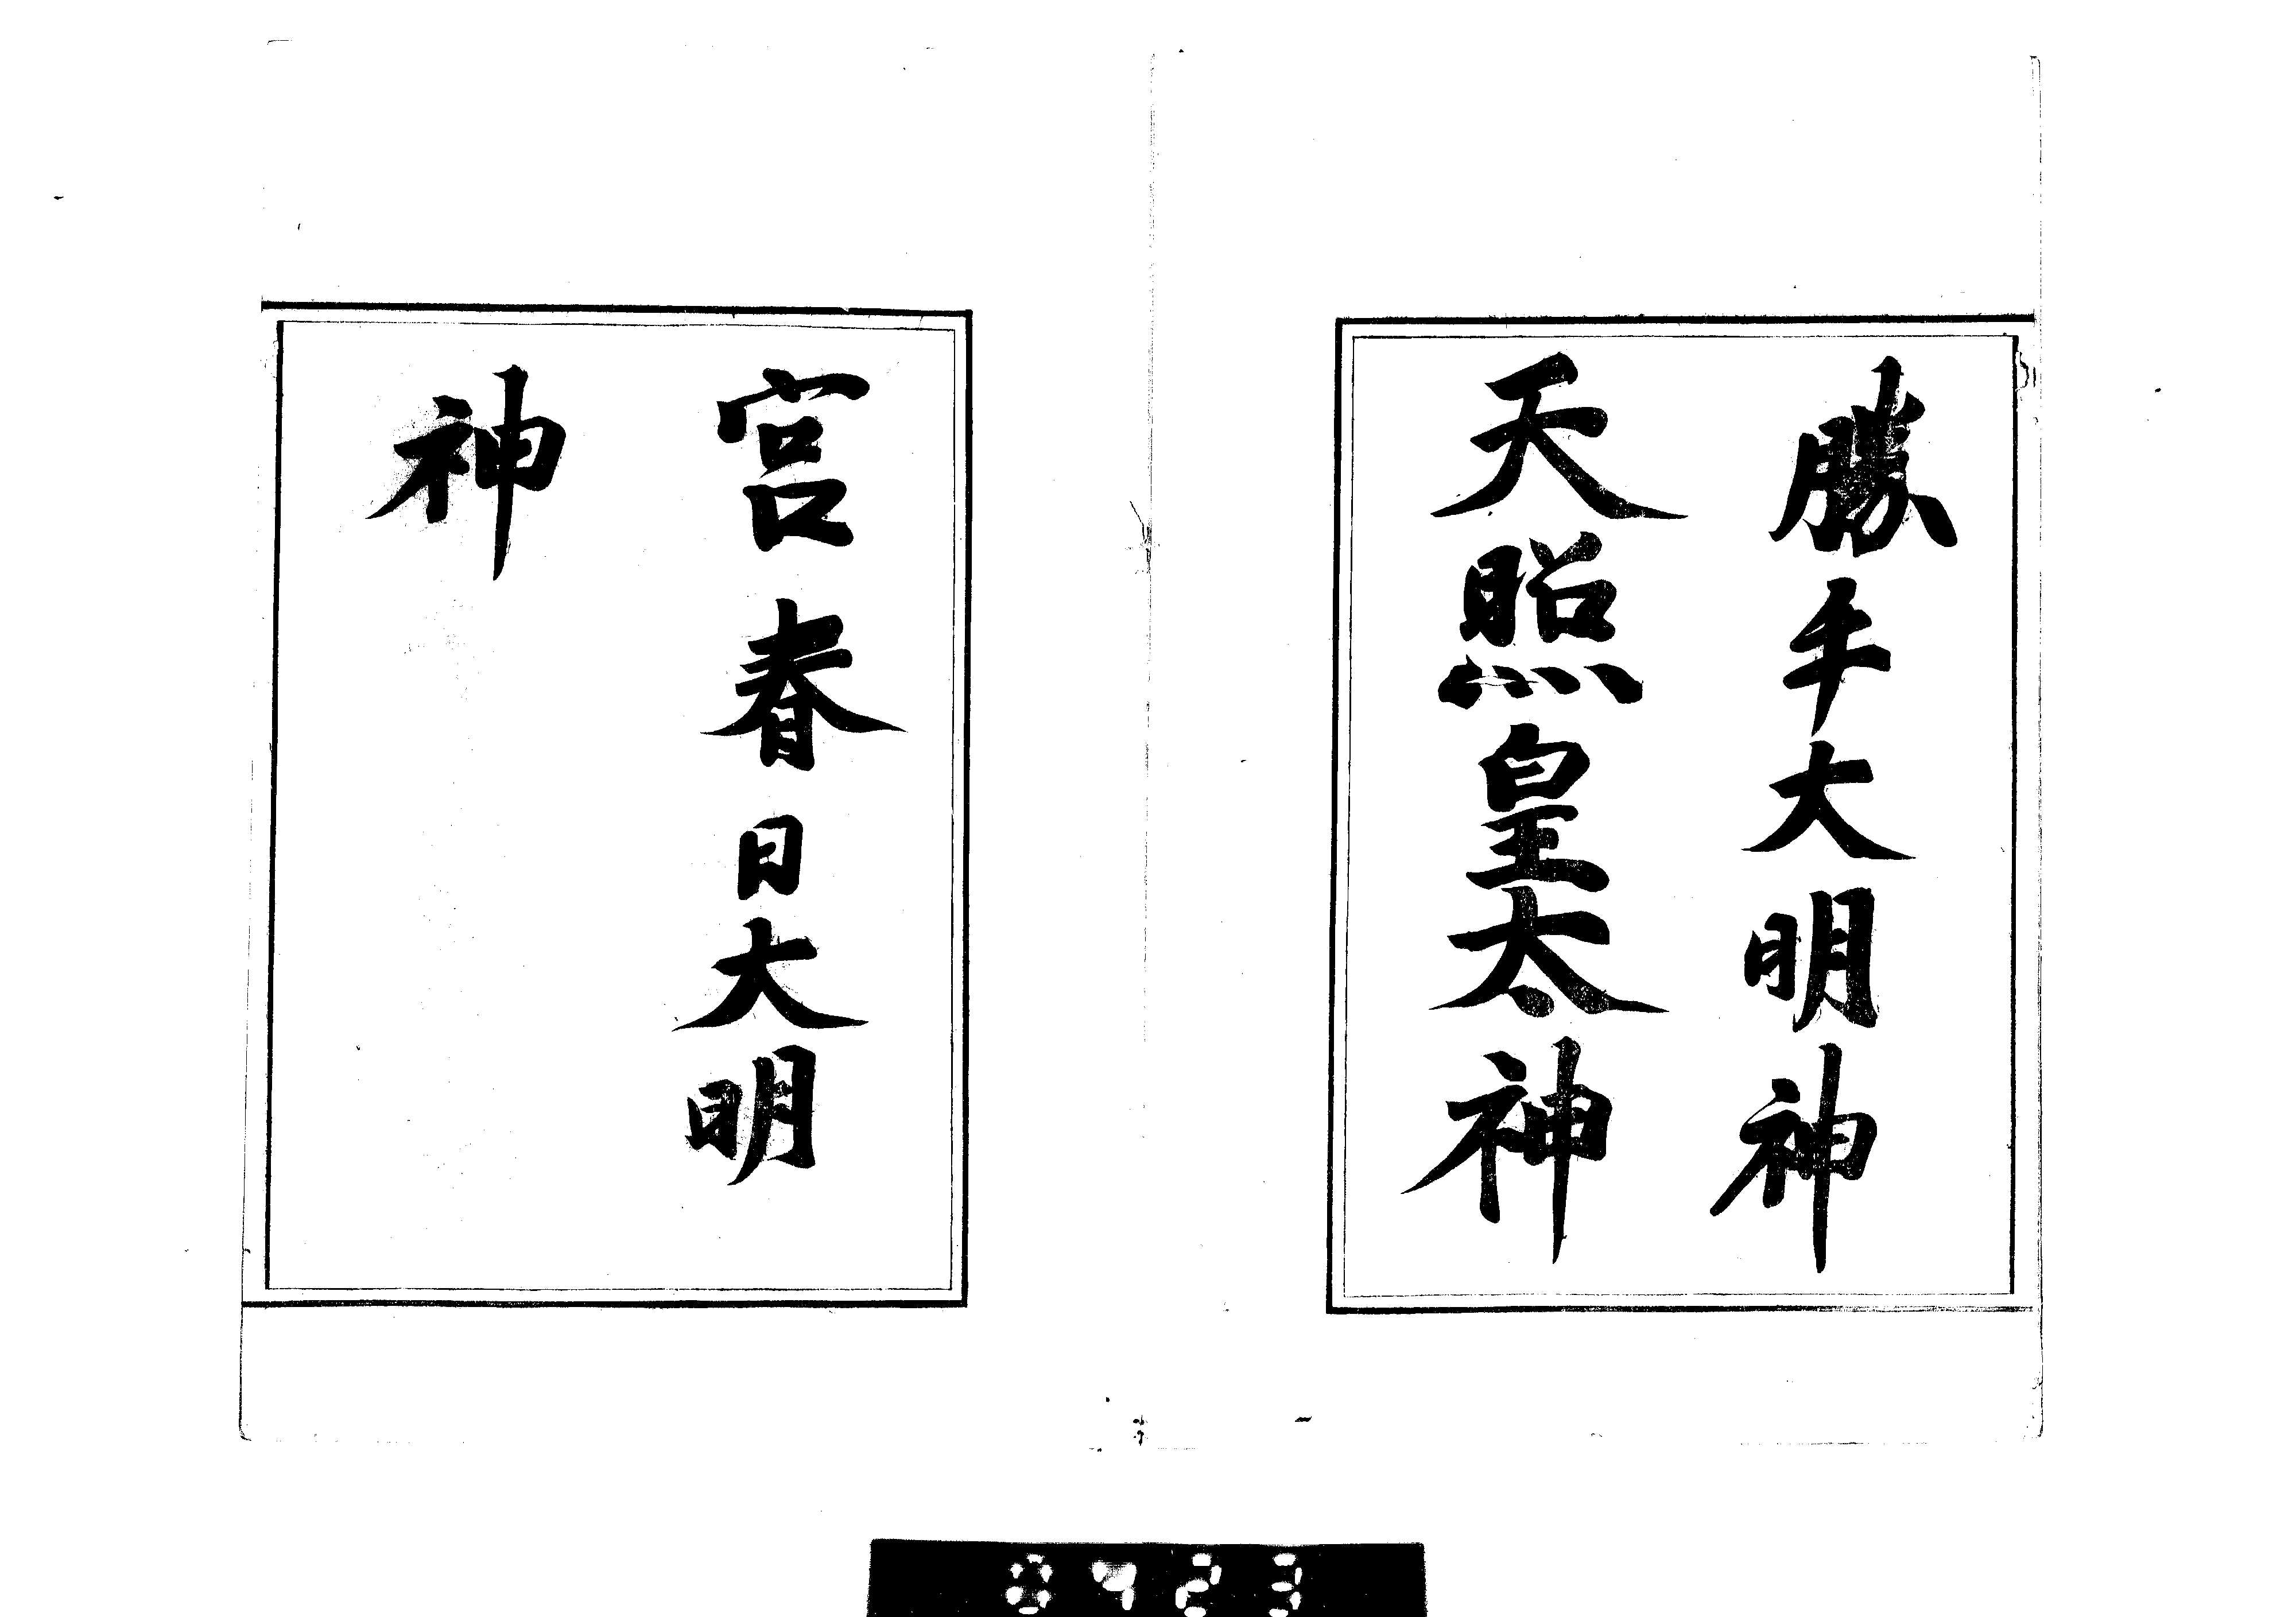 勝手大明神
天照皇太神
宮春日大明
神